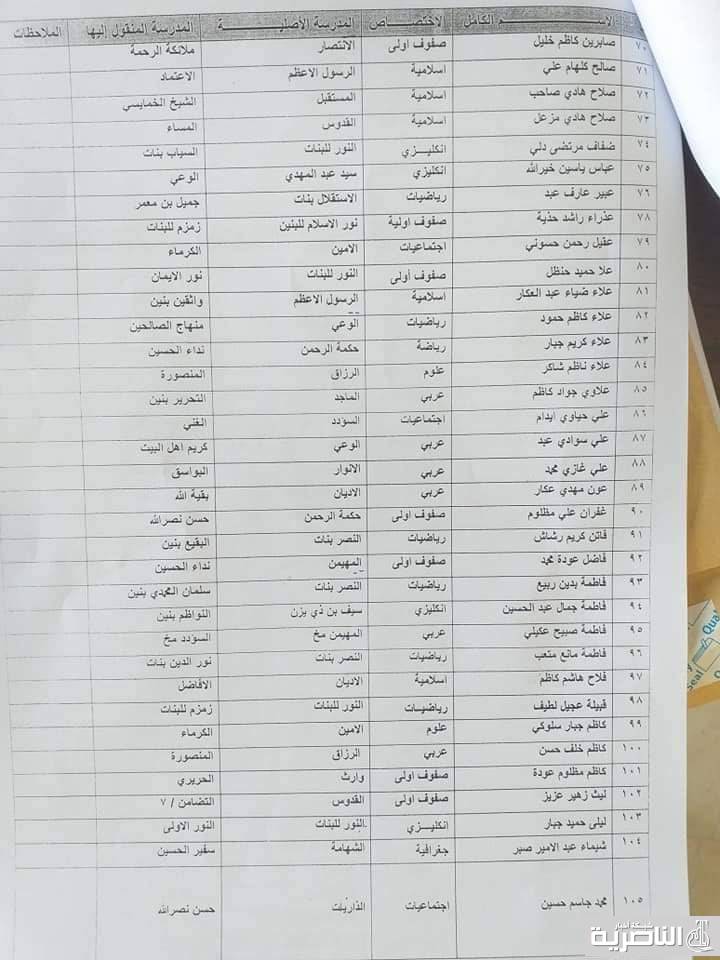 الاسم الكامل الاختصاص المدرسة الأصلية المدرسة المنقول إليها الملاحظات
٧٠ صابرين كاظم خليل صفوف اولى الانتصار ملائكة الرحمة
٧١ صالح كلهام علي اسلامية الرسول الاعظم الاعتماد
٧٢ صلاح هادي صاحب اسلامية المستقبل الشيخ الخميسي
٧٣ صلاح هادي مزعل اسلامية القدوس المساء
٧٤ ضفاف مرتضى دلي انكليزي النور للبنات السياب بنات
٧٥ عباس ياسين خيرالله انكليزي سيد عبد المهدي الوعي
٧٦ عبير عارف عبد رياضيات الاستقلال بنات جميل بن معمر
٧٨ عذراء راشد حذية صفوف اولية نور الاسلام للبنين زمزم للبنات
٧٩ عقيل رحمن حسوني اجتماعيات الامين الكرماء
٨٠ علا حميد حنظل صفوف أولى النور للبنات نور الايمان
٨١ علاء ضياء عبد العكار اسلامية الرسول الاعظم واثقين بنين
٨٢ علاء كاظم حمود رياضيات الوعي منهاج الصالحين
٨٣ علاء كريم جبار رياضة حكمة الرحمن نداء الحسين
٨٤ علاء ناظم شاكر علوم الرزاق المنصورة
٨٥ علاوي جواد كاظم عربي الماجد التحرير بنين
٨٦ علي حياوي ايدام اجتماعيات السؤدد الغني
٨٧ علي سوادي عبد عربي الوعي كريم اهل البيت
٨٨ علي غازي محمد عربي الانوار البواسق
٨٩ عون مهدي عكار عربي الاديان بقية الله
٩٠ غفران علي مظلوم صفوف اولى حكمة الرحمن حسن نصرالله
٩١ فاتن كريم رشاش رياضيات النصر بنات البقيع بنين
٩٢ فاضل عودة محمد صفوف اولى المهيمن نداء الحسين
٩٣ فاطمة بدين ربيع رياضيات النصر بنات سلمان المحمدي بنين
٩٤ فاطمة جمال عبد الحسين انكليزي سيف بن ذي يزن النواظم بنين
٩٥ فاطمة صبيح عكيلي عربي المهيمن مخ السؤدد مخ
٩٦ فاطمة مانع متعب رياضيات النصر بنات نور الدين بنات
٩٧ فلاح هاشم كاظم اسلامية الاديان الافاضل
٩٨ قبيلة عجيل لطيف رياضيات النور للبنات زمزم للبنات
٩٩ كاظم جبار سلوكي علوم الامين الكرماء
١٠٠ كاظم خلف حسن عربي الرزاق المنصورة
١٠١ كاظم مظلوم عودة صفوف اولى وارث الحريري
١٠٢ ليث زهير عزيز صفوف اولى القدوس التضامن / ٧
١٠٣ ليلى حميد جبار انكليزي النور للبنات النور الاولى
١٠٤ شيماء عبد الامير صبر جغرافية الشهامة سفير الحسين
١٠٥ محمد جاسم حسين اجتماعيات الذاريات حسن نصرالله
شبكة اخبار
الناصرية
Qua
Seal